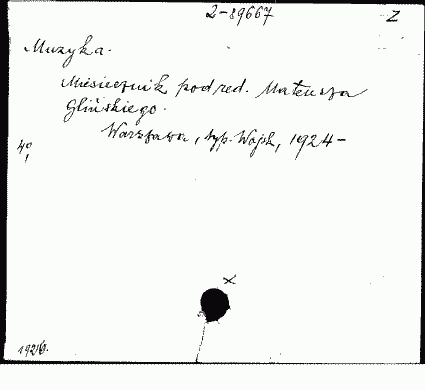 2-89667 Z
Muzyka.
Miesięcznik pod red. Mateusza
Glińskiego.
Warszawa, typ. Wojsk, 1924-
4°
1926.